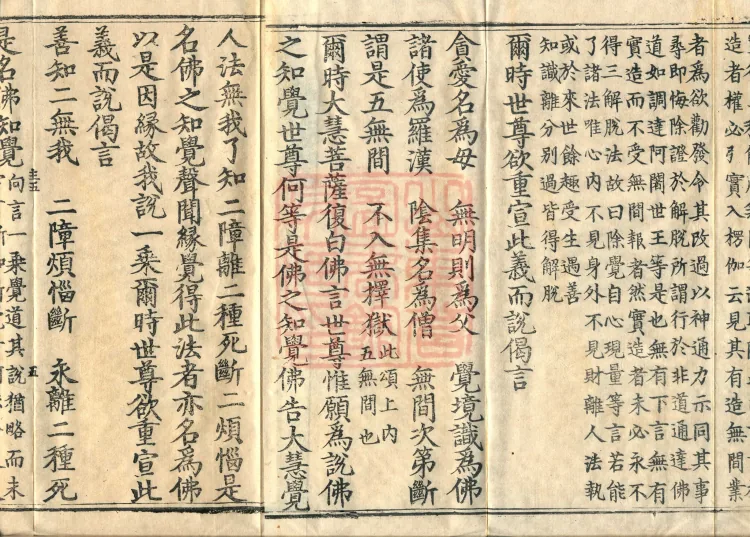 造者權必引實入楞伽云見其有造無間業
者為欲勸發令其改過以神通力示同其事
尋即悔除證於解脫所謂行於非道通達佛
道如調達阿闍世王等是也無有下言無有
實造而不受無間報者然實造者未必永不
得三解脫法故曰除覺自心現量等言若能
了諸法唯心內不見身外不見財離人法執
或於來世餘趣受生遇善
知識離分別過皆得解脫
爾時世尊欲重宣此義而說偈言
貪愛名為母 無明則為父 覺境識為佛
諸使為羅漢 陰集名為僧 無間次第斷
謂是五無間 不入無擇獄 此頌上內
五無間也
爾時大慧菩薩復白佛言世尊惟願為說佛
之知覺世尊何等是佛之知覺佛告大慧覺
人法無我了知二障離二種死斷二煩惱是
名佛之知覺聲聞緣覺得此法者亦名為佛
以是因緣故我說一乘爾時世尊欲重宣此
義而說偈言
善知二無我 二障煩惱斷 永離二種死
是名佛知覺 向言一乘覺道其說猶略而未
五